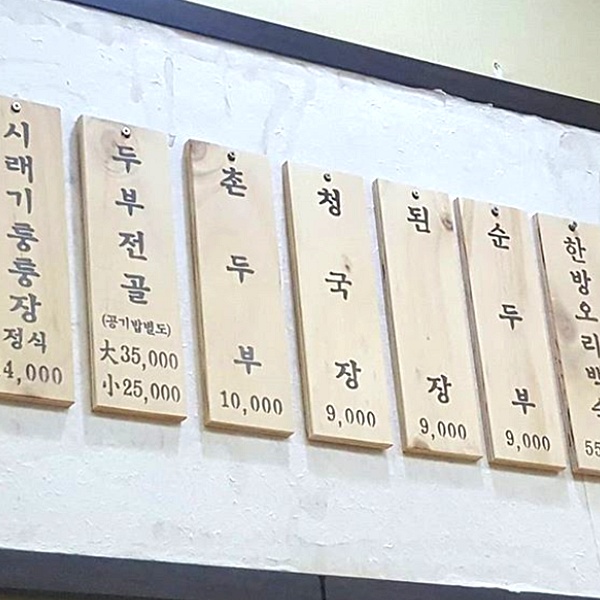 시래기퉁퉁장
정식
4,000
두부전골
(공기밥별도)
大 35,000
小 25,000
촌두부
10,000
청국장
9,000
된장
9,000
순두부
9,000
한방오리백숙
55